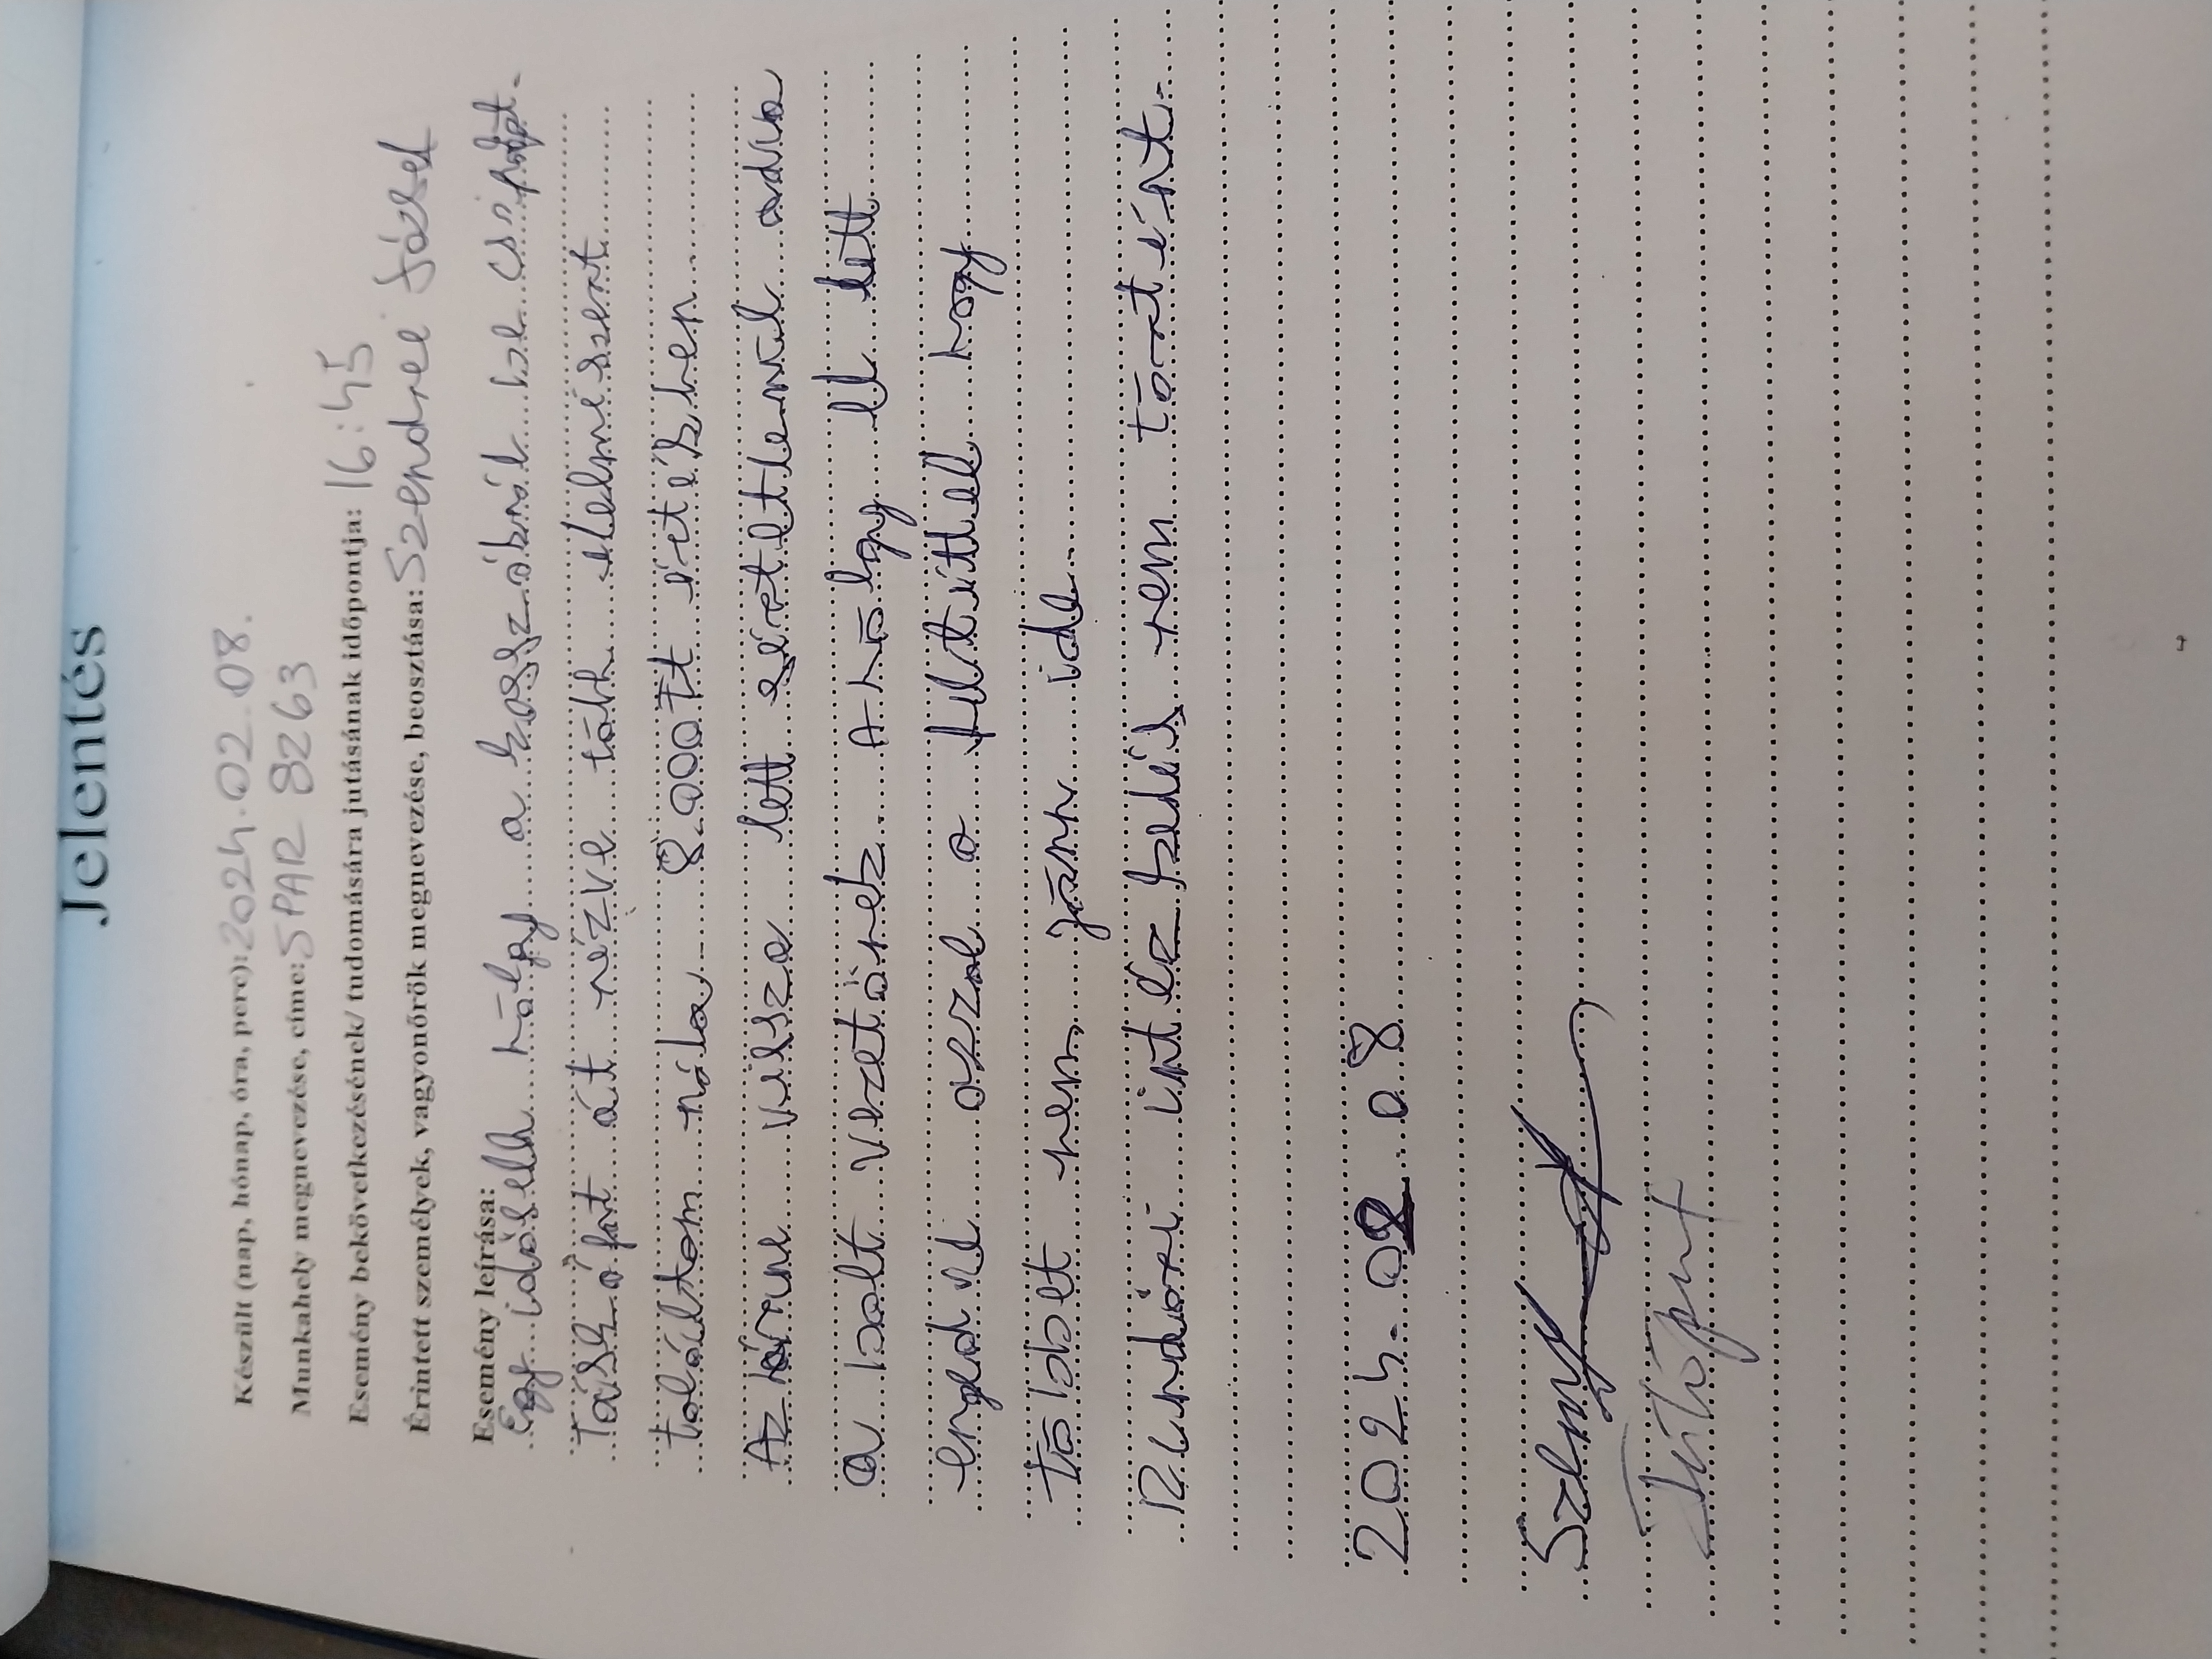 Jelentés
Készült (nap, hónap, óra, perc): 2024.02.08.
Munkahely megnevezése, címe: SPAR 8263
Esemény bekövetkezésének/ tudomására jutásának időpontja: 16:45
Érintett személyek, vagyonőrök megnevezése, beosztása: Szendrei József
Esemény leírása:
Egy idősebb hölgy a kasszáknál be csípot.
Táskáját át nézve több élelmiszert
találtam nála. 8.000 Ft értékben
Az árru vissza lett sértetlenül adva
a bolt vezetőnek. A hölgy el lett
engedve azzal a feltéttel hogy
többet nem járhr ide.
Rendőri intézkedés nem tortént.
2024.02.08